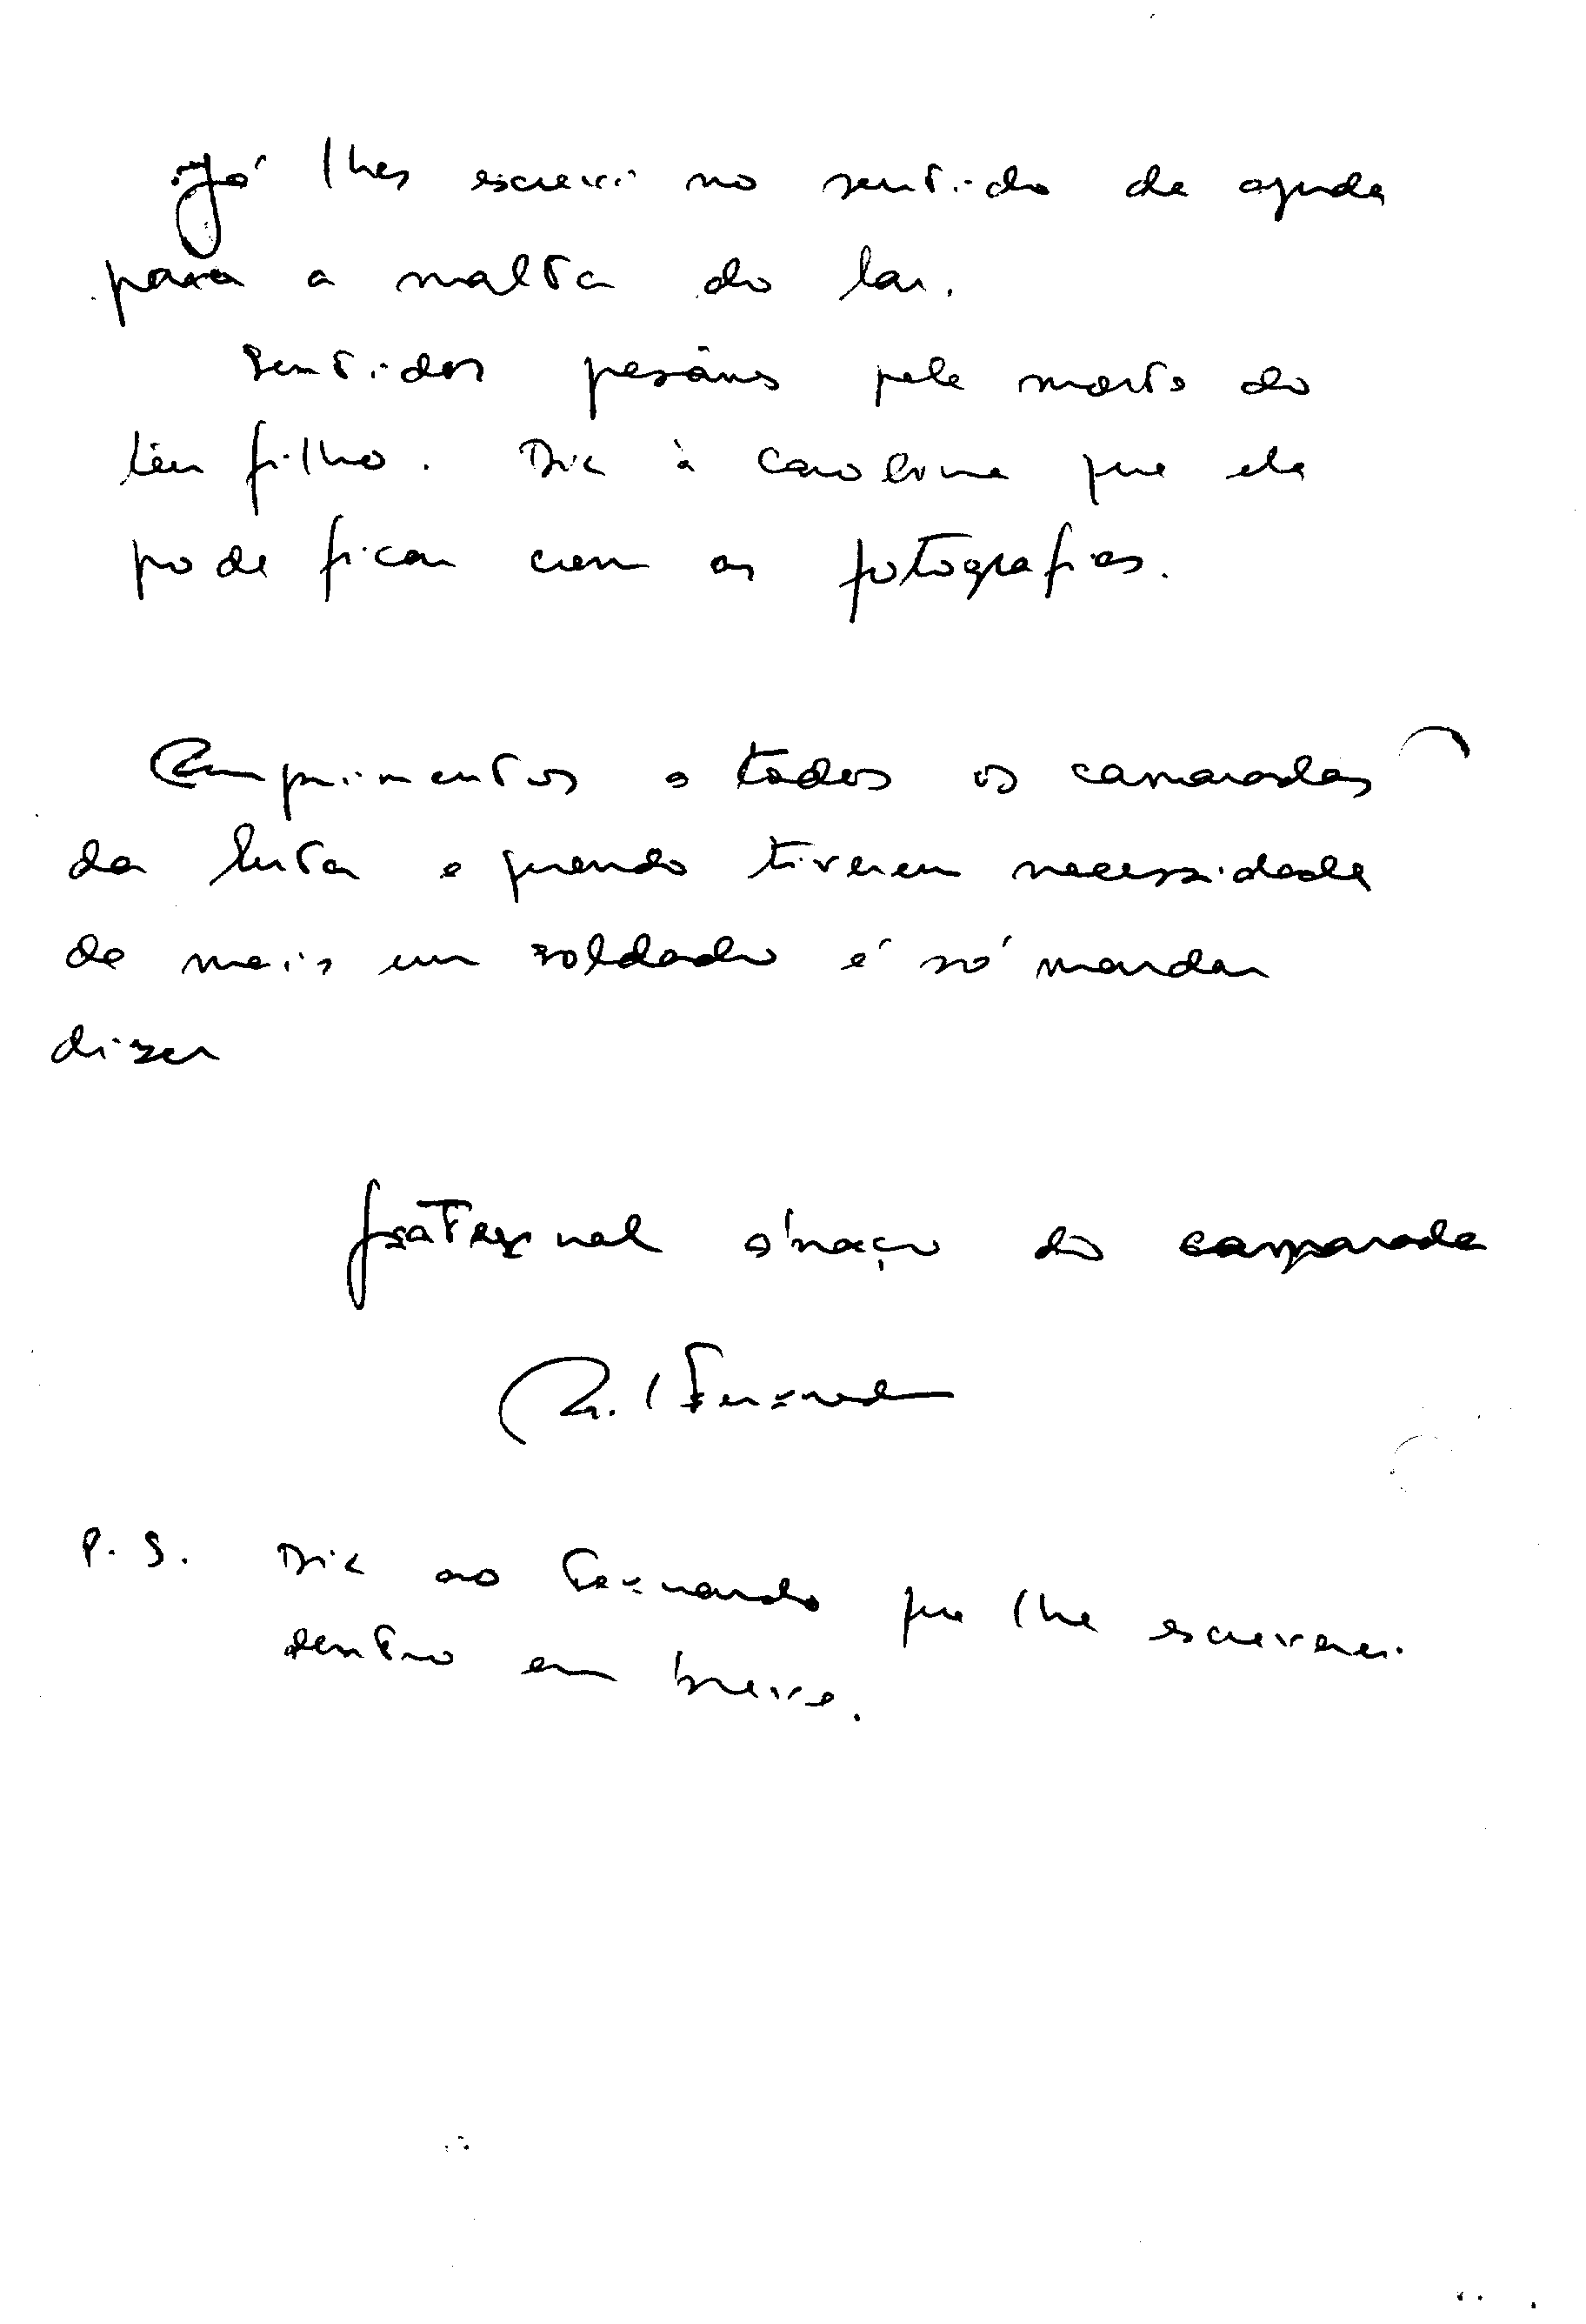 Já lhes escrevi no sentido de ajuda
para a malta do lar.
Sentidos pesâmes pela morte do
teu filho. Diz à Carolina que ela
pode ficar com as fotografias.
Cumprimentos a todos os camaradas
da luta e quando tiverem necessidade
de mais um soldado é só mandar
dizer
fraternal abraço do camarada
P.S. Diz ao Fernando que lhe escreverei
dentro em breve.